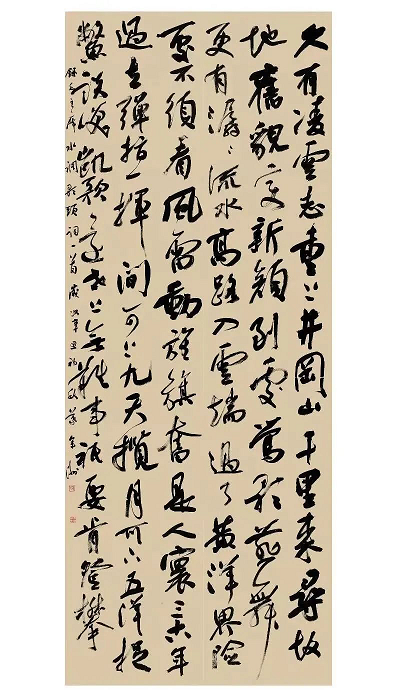 久有凌雲志重上井岡山千里来尋故
地舊貌变新顔到處莺歌燕舞
更有潺潺流水高路入雲端過了黄洋界險
處不須看風雷動旌旗奮是人寰三十八年
過去彈指一揮間可上九天攬月可下五洋捉
鱉談笑凱歌還世上無難事祇要肯登攀
録毛主席水調歌頭詞一首歲次辛丑初秋